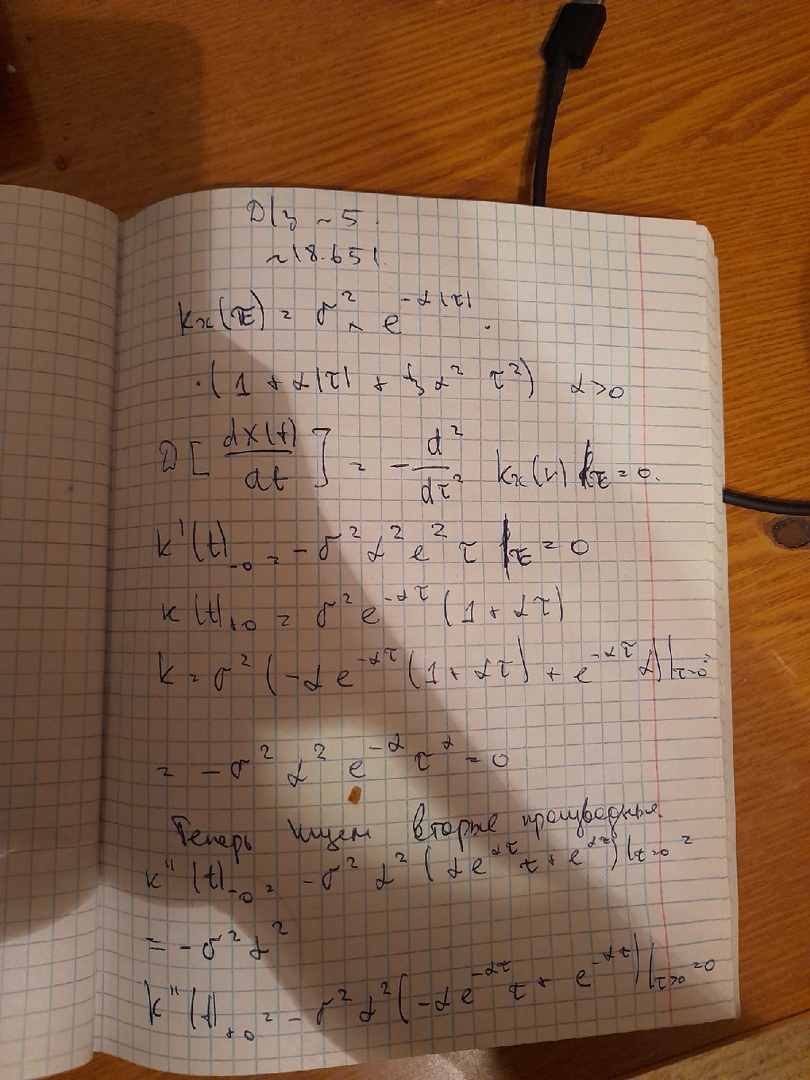 Д/з ~ 5.
~18.651.
Kx(τ) = σ² × e^{-α|τ|} ·
·(1 + α|τ| + ⅓ α² τ²) α>0
D[dX(t)/dt] = - d²/dτ² Kx(τ) |τ=0.
K'(t)|₋₀ = - σ² α² e² τ |τ = 0
K(t)|₊₀ = σ² e^{-ατ} (1 + ατ)
K = σ² (-α e^{-ατ} (1 + ατ) + e^{-ατ} α)|τ=0
= - σ² α² e^{-α} τ^α = 0
Теперь ищем вторые производные
K''(t)|₋₀ = - σ² α² (α e^{ατ} τ + e^{ατ})|τ=0 =
= - σ² α²
K''(t)|₊₀ = - σ² α² (-α e^{-ατ} τ + e^{-ατ})|τ>0 =0